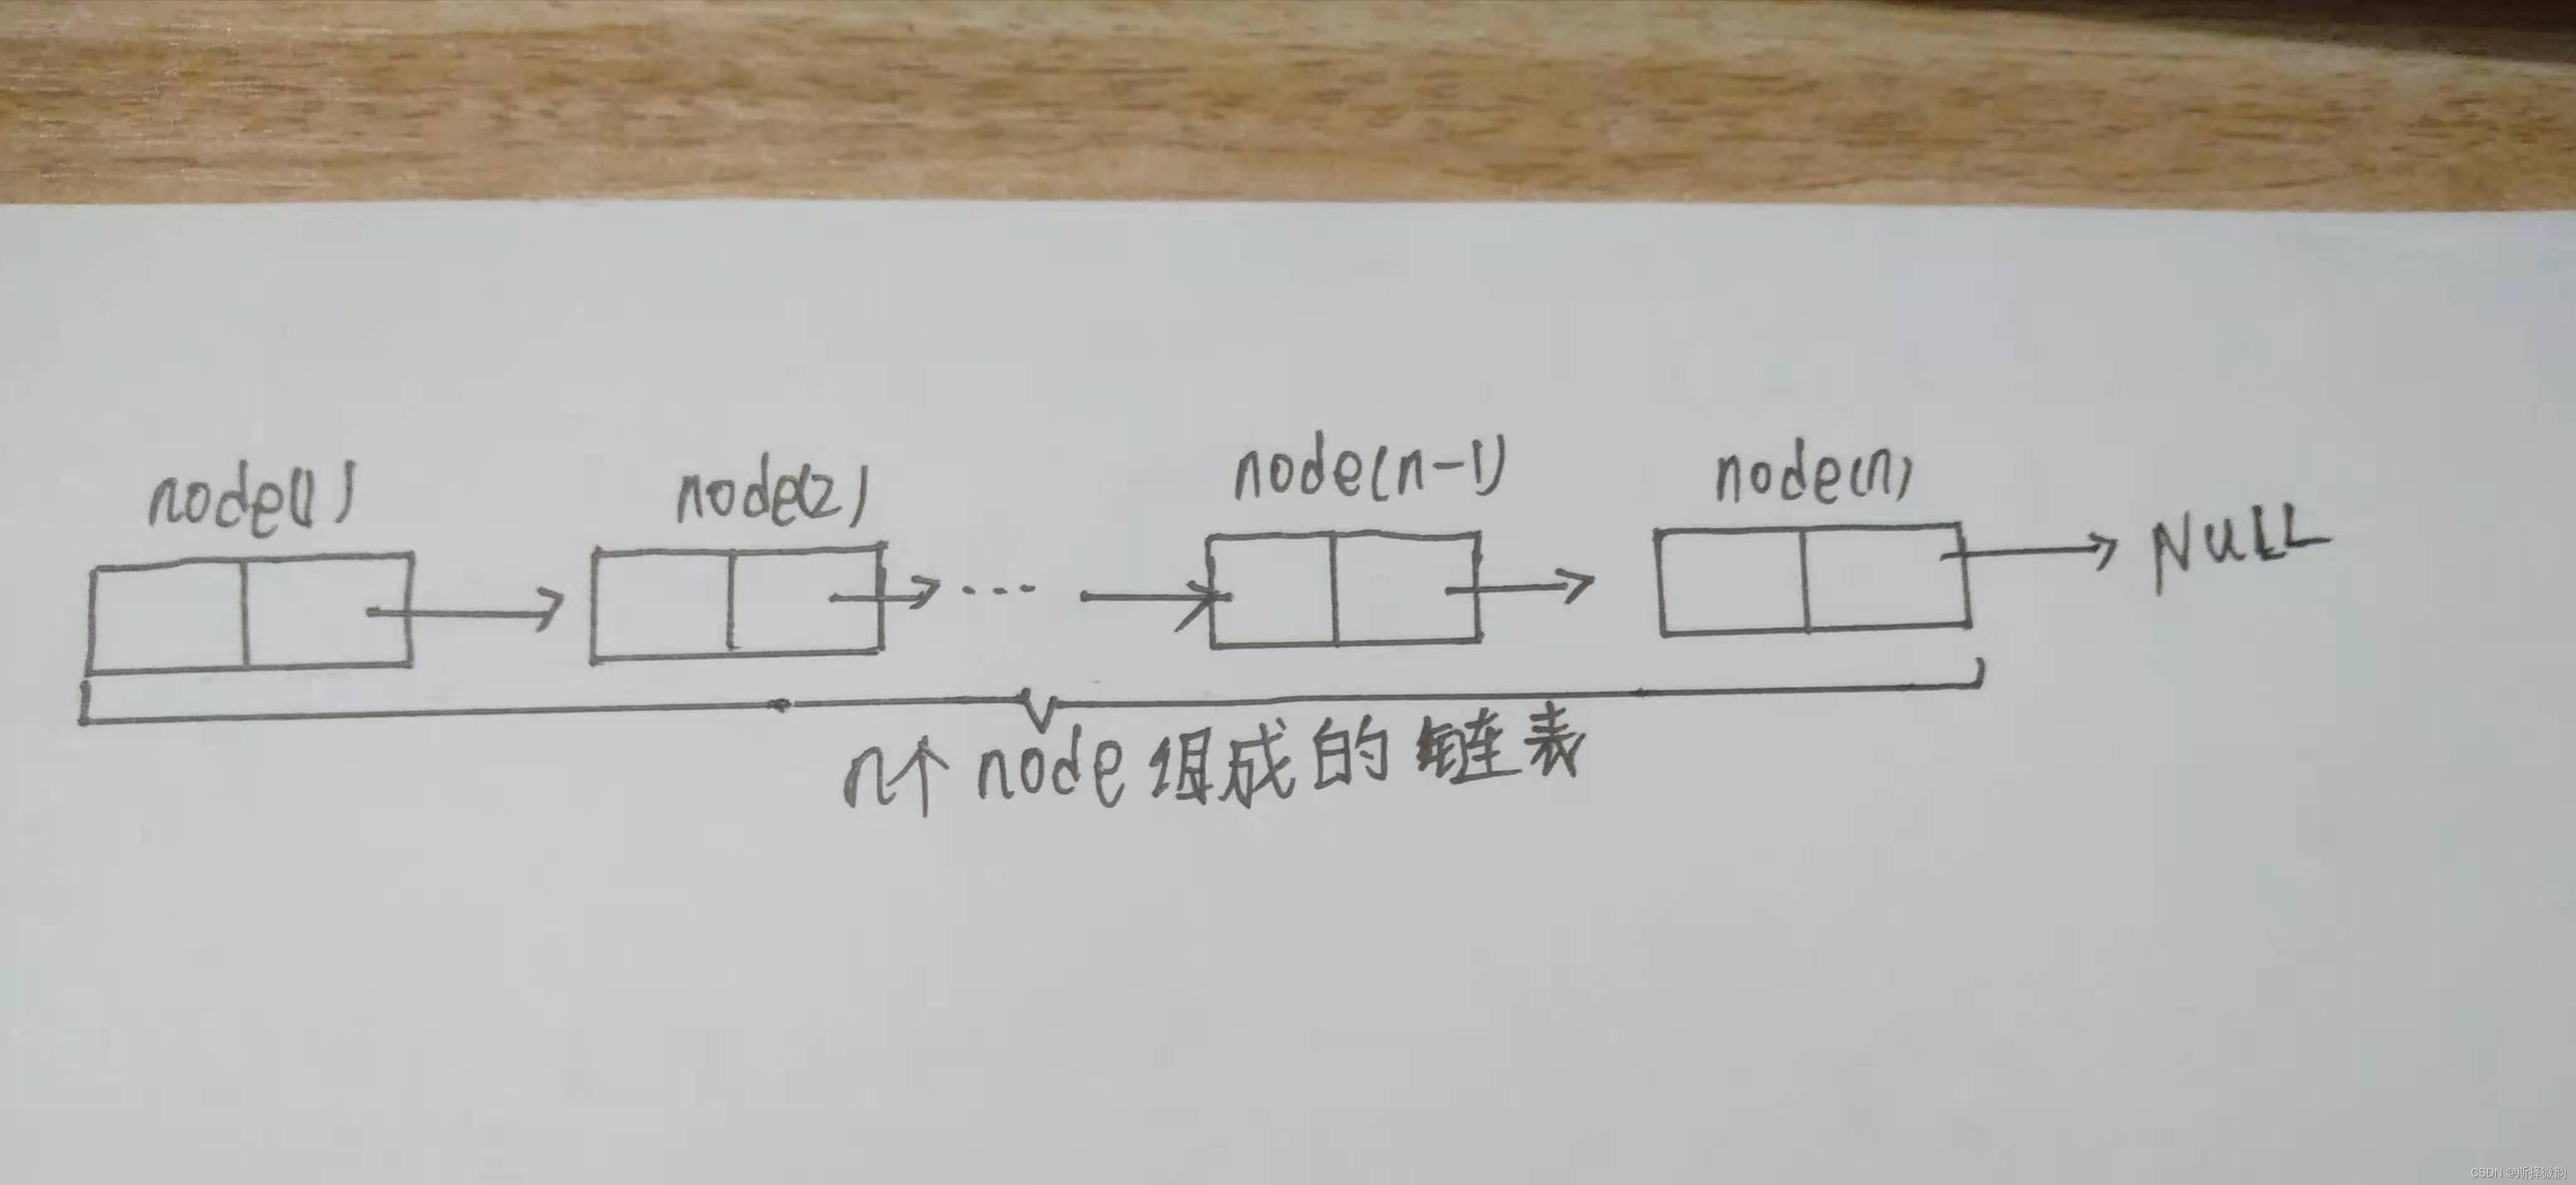 node(1) node(2) node(n-1) node(n)
... NULL
n个 node 组成的 链表
CSDN @斯择微韵